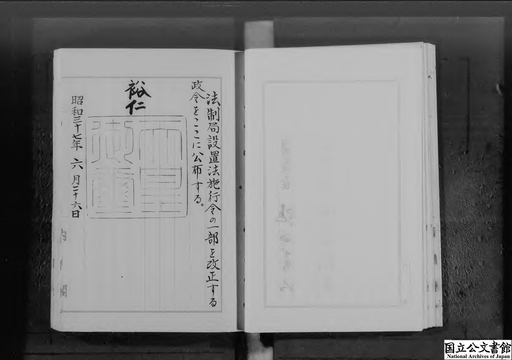 法制局設置法施行令の一部を改正する
政令をここに公布する。
裕仁
天皇御璽
昭和三十七年六月二十六日
内閣
国立公文書館
National Archives of Japan